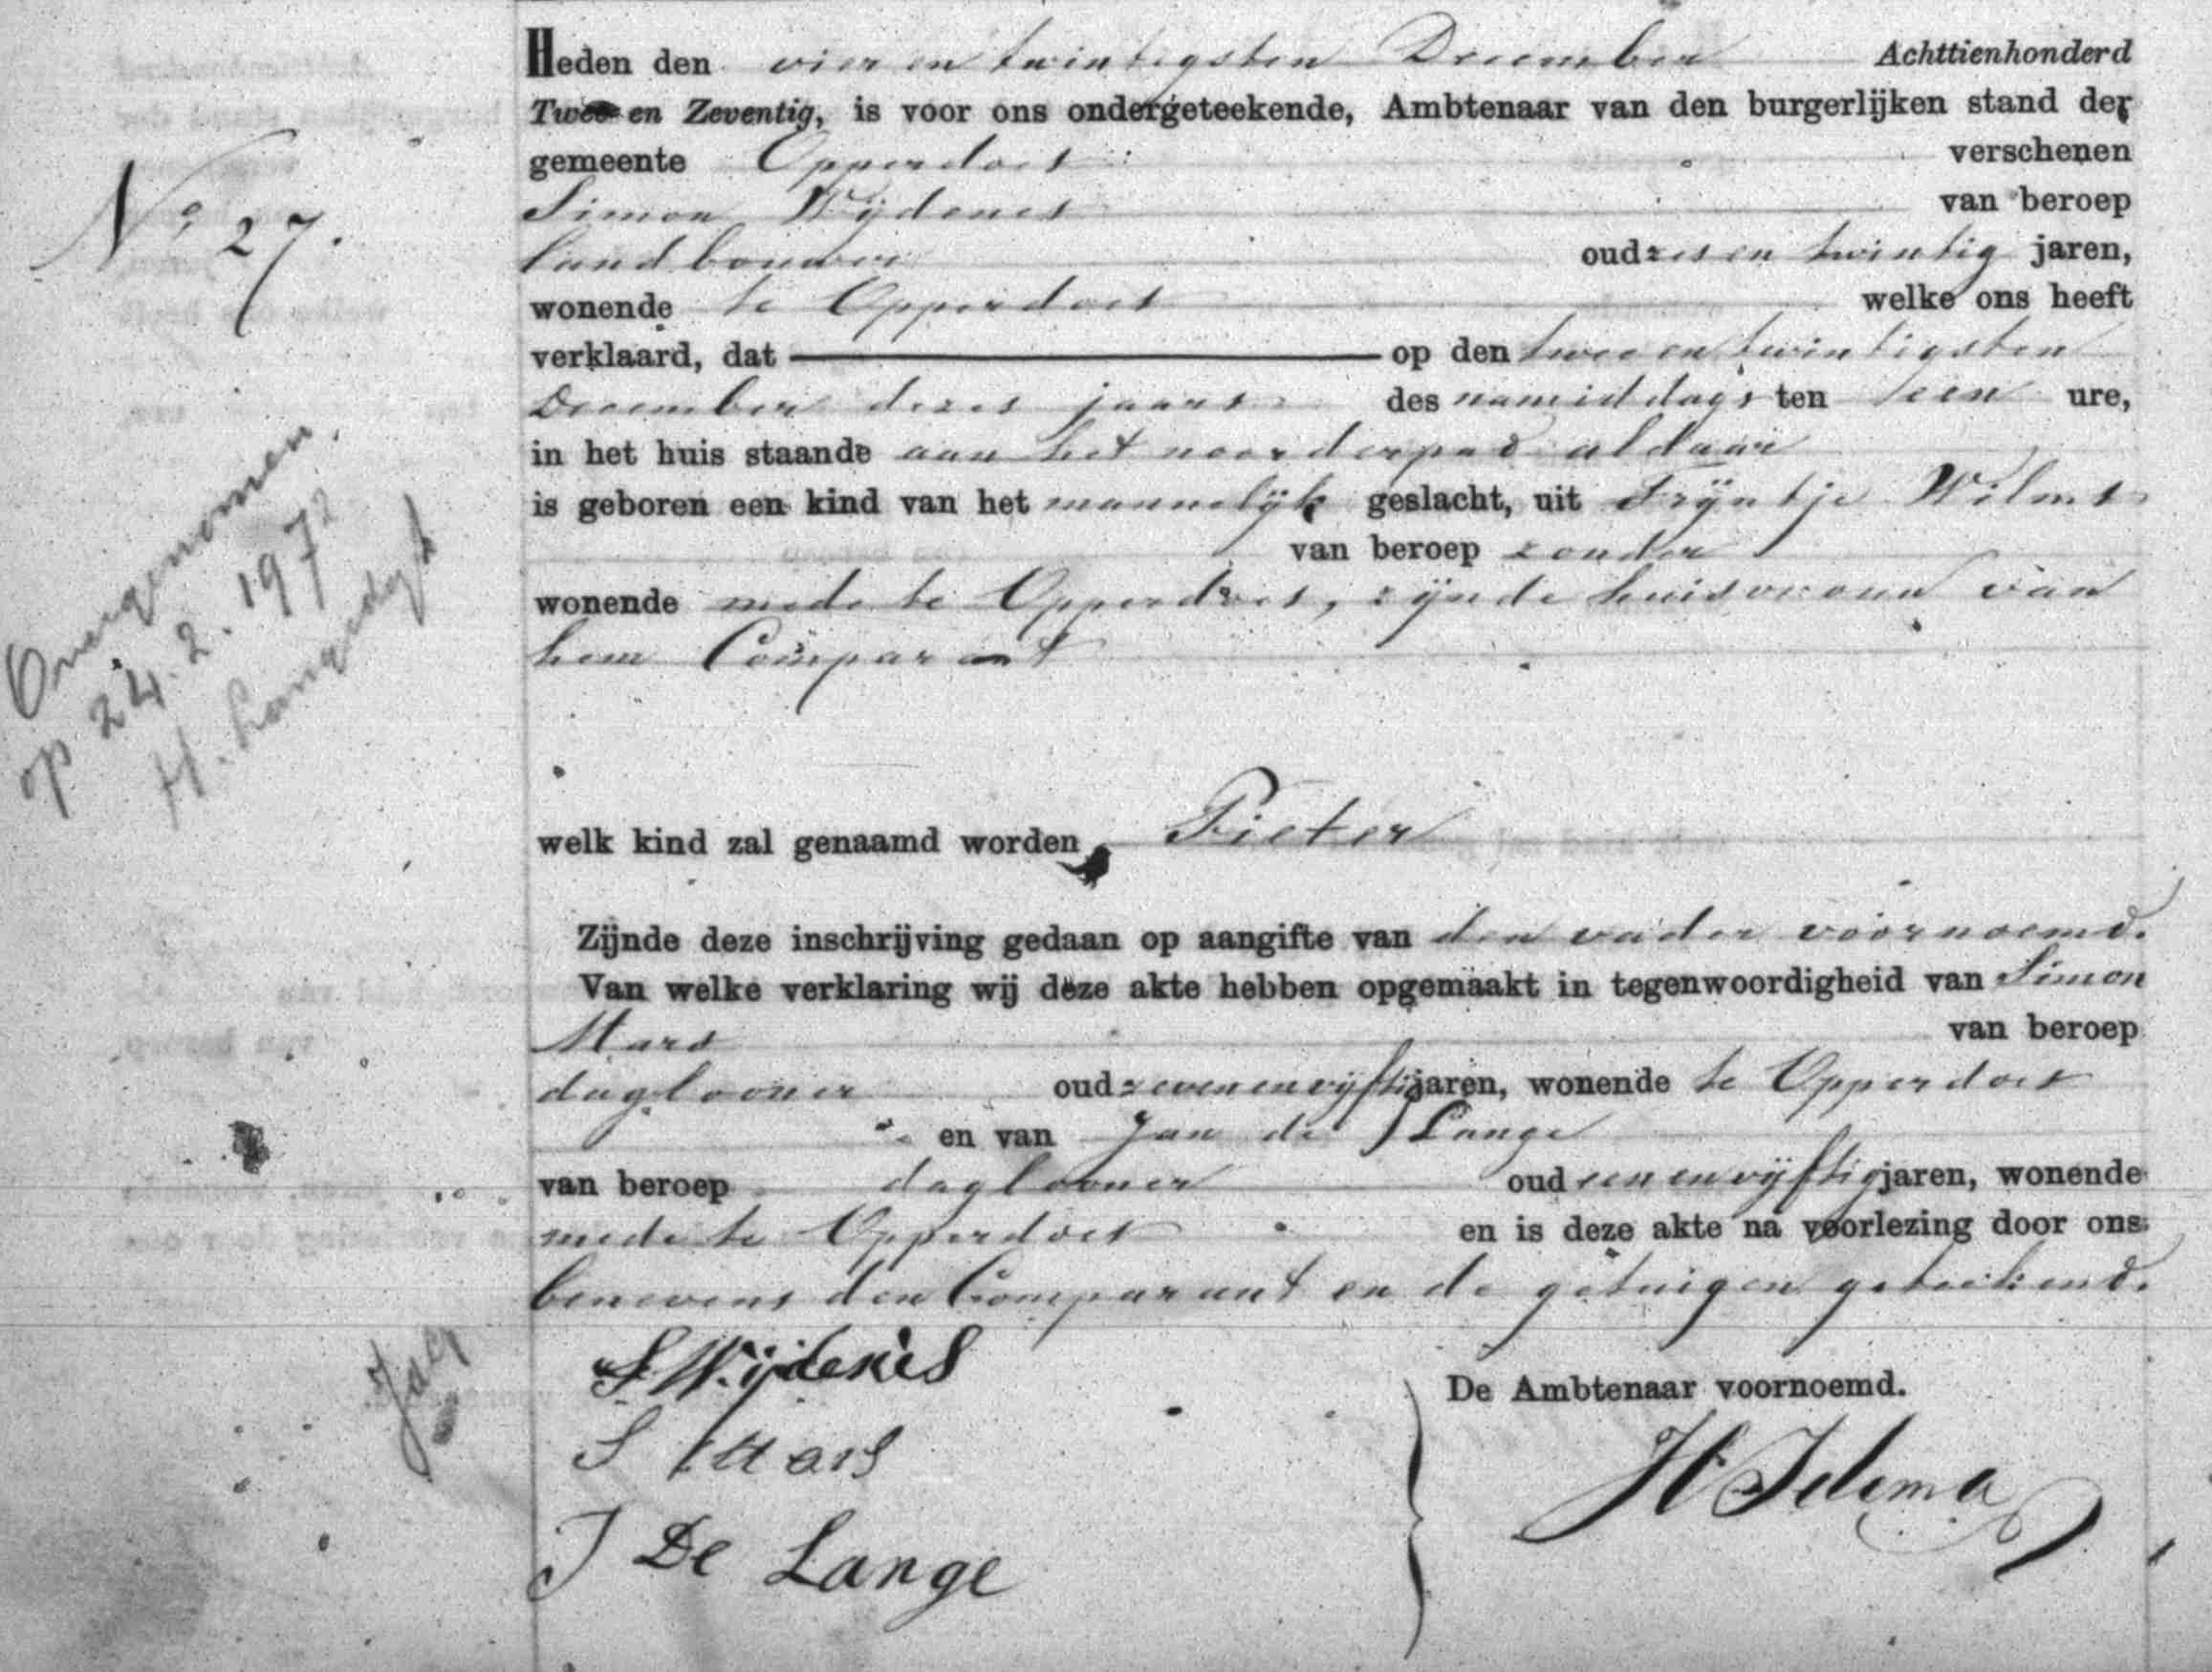 Heden den vier en twintigsten December Achttienhonderd
Twee en Zeventig, is voor ons ondergeteekende, Ambtenaar van den burgerlijken stand der
gemeente Opperdoes verschenen
Simon Wijdenes van beroep
landbouwer oud zes en twintig jaren,
wonende te Opperdoes welke ons heeft
verklaard, dat op den twee en twintigsten
December dezes jaars des namiddags ten een ure,
in het huis staande aan het noorderpad aldaar
is geboren een kind van het mannelijk geslacht, uit Trijntje Wilms
van beroep zonder
wonende mede te Opperdoes, zijnde huisvrouw van
hem Comparant
welk kind zal genaamd worden Pieter
Zijnde deze inschrijving gedaan op aangifte van den vader voornoemd.
Van welke verklaring wij deze akte hebben opgemaakt in tegenwoordigheid van Simon
Mars van beroep
daglooner oud zeven en vijftig jaren, wonende te Opperdoes
en van Jan de Lange
van beroep daglooner oud een en vijftig jaren, wonende
mede te Opperdoes en is deze akte na voorlezing door ons
benevens den Comparant en de getuigen geteekend.
S Wijdenes
S Mars
J De Lange
De Ambtenaar voornoemd.
No 27.
Overgenomen
op 24.2.1972
H. Langedijk